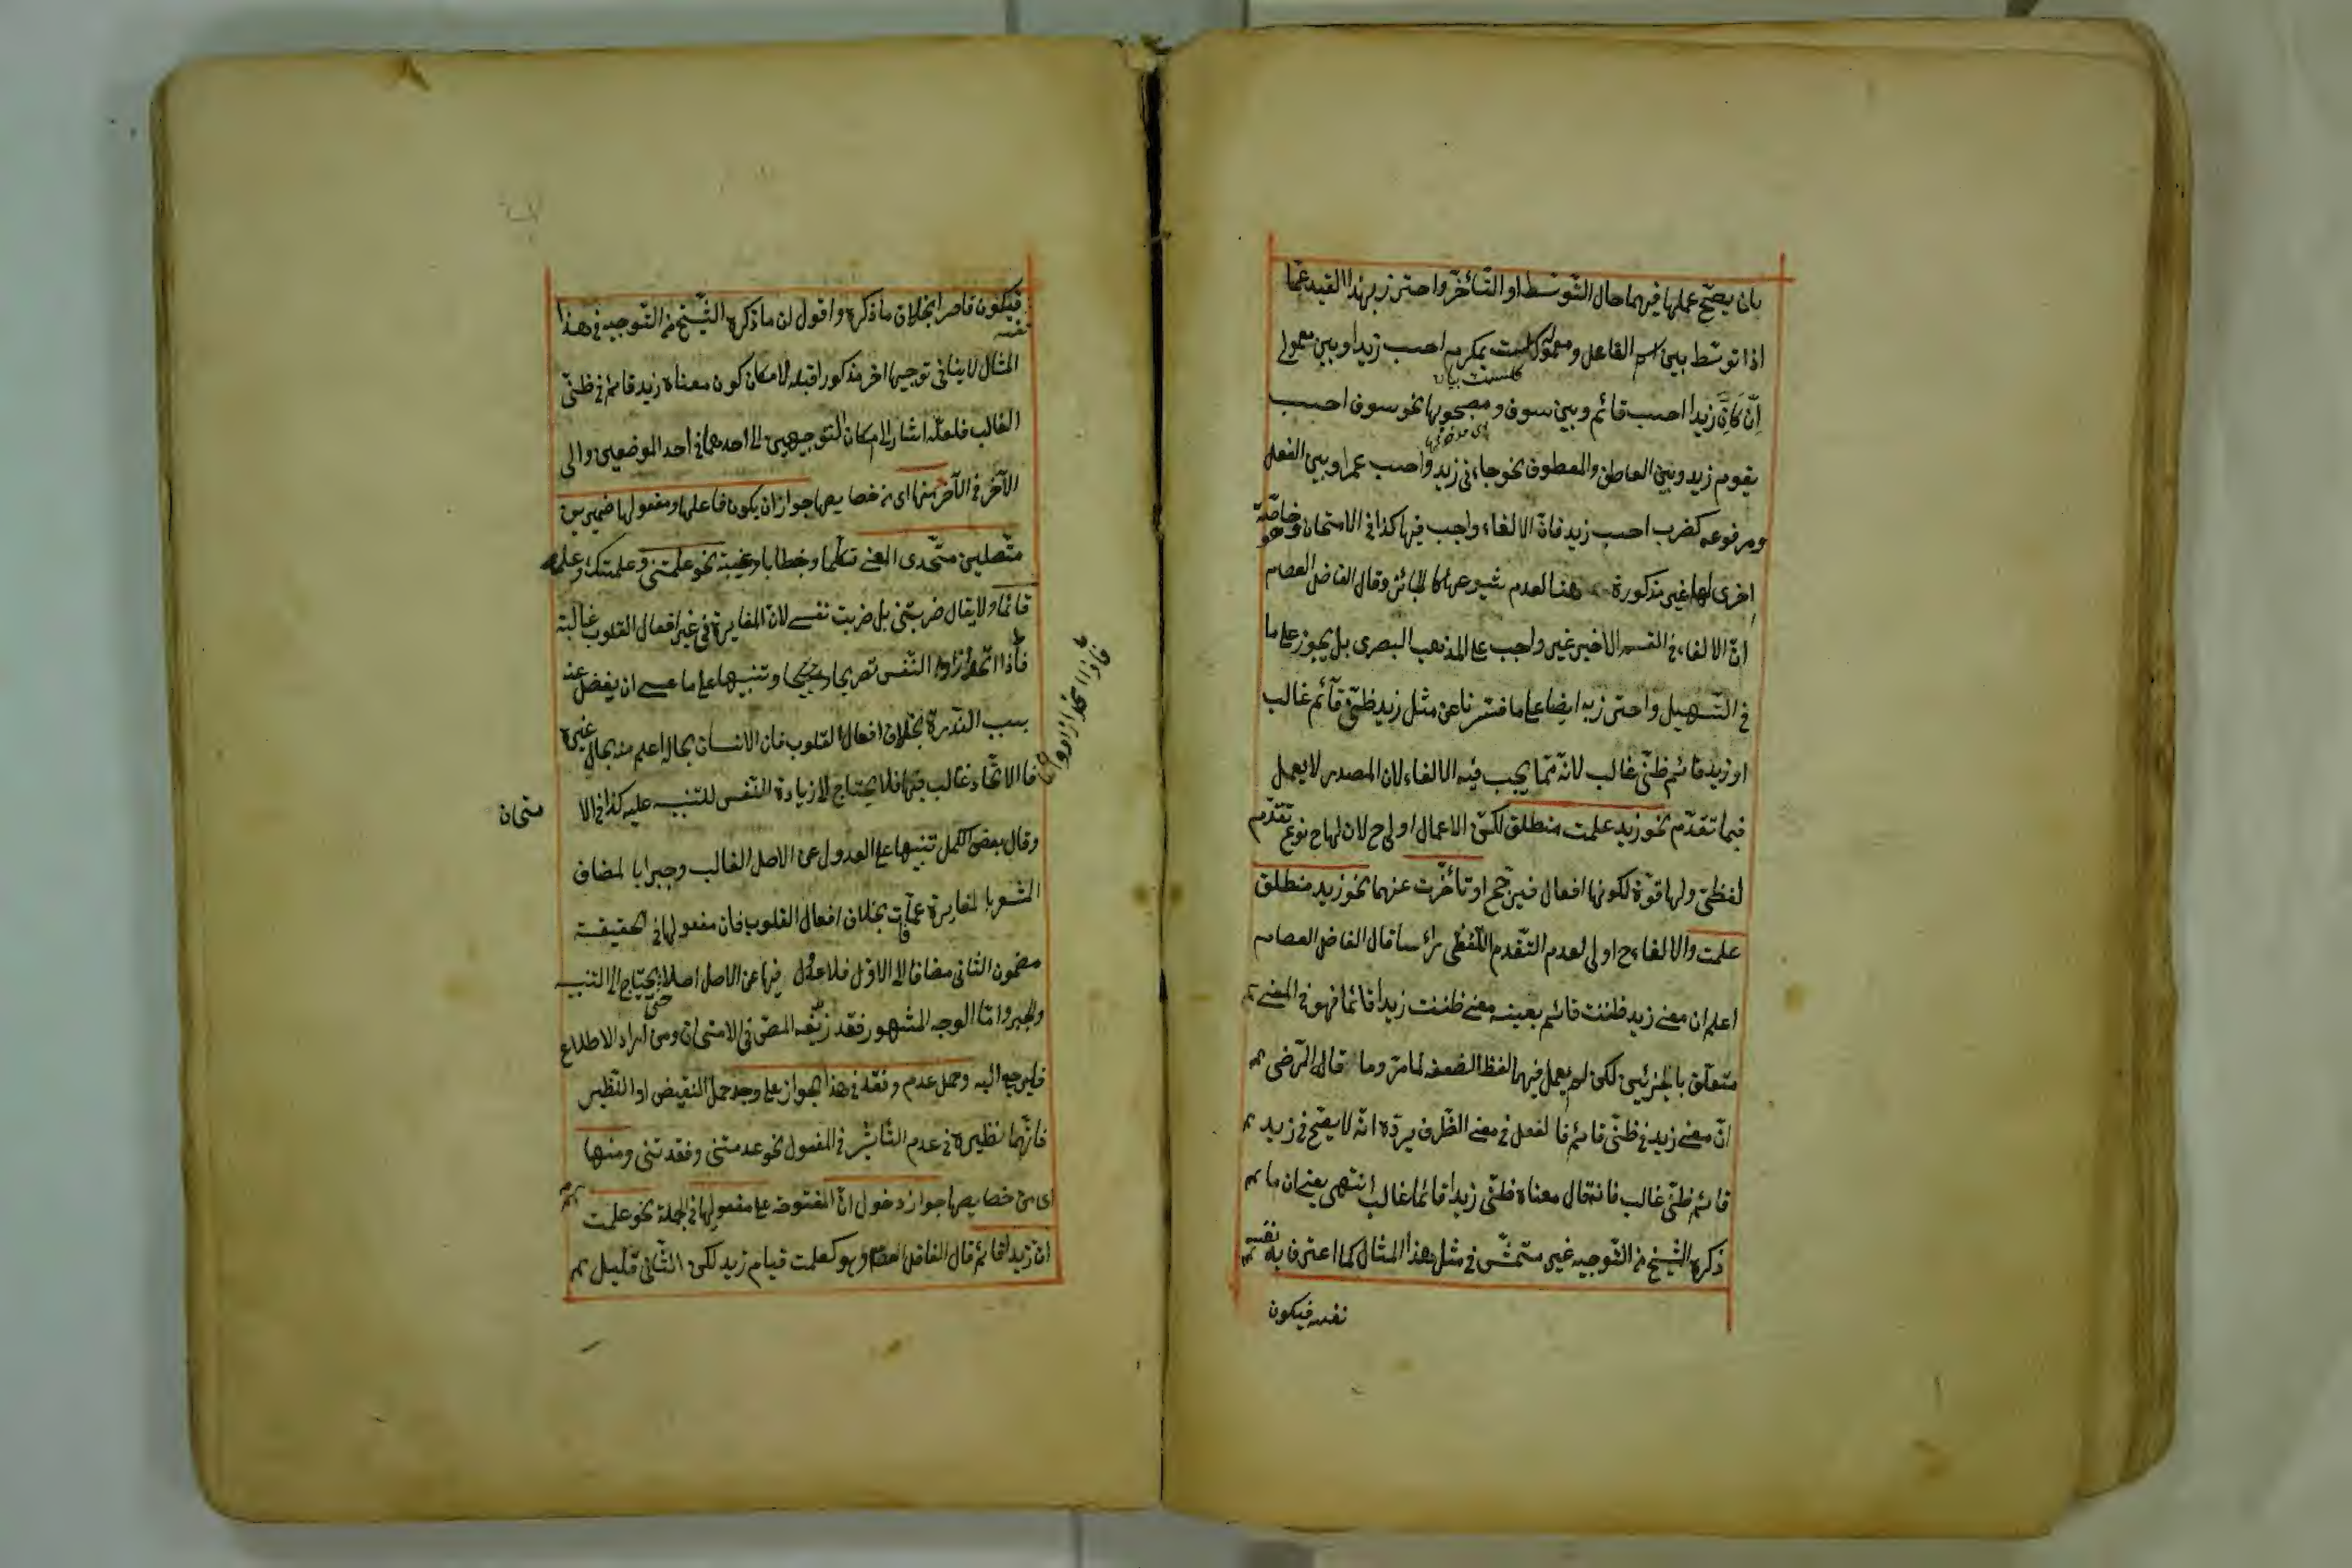 بان يصحّ عملها فيهما حال التّوسّط او التّأخّر واحترز بهذا القيد عمّا
اذا توسّط بين اسم الفاعل ومعموله كلست بمكرم احسب زيدا وبين معمولى
انّ كانّ زيدا احسب قائم وبين سوف ومصحوبها نحو سوف احسب
يقوم زيد وبين العاطف والمعطوف نحو جاءنى زيد واحسب عمرا وبين الفعل
ومرفوعه كضرب احسب زيد فانّ الالغاء واجب فيها كذا فى الامتحان وخاصّة
اخرى لها غير مذكورة هنا لعدم شيوعها كالجائز وقال الفاضل العصام
انّ الالغاء فى القسم الاخير غير واجب على المذهب البصرى بل يجوز على ما
فى التّسهيل واحترز به ايضا على ما فسّرنا عن مثل زيد ظنّى قآئم غالب
او زيد قائم ظنّى غالب لانّه ممّا يجب فيه الالغاء لان المصدر لا يعمل
فيما تقدّم نحو زيد علمت منطلق لكنّ الاعمال اولى ح لان لها ح نوع تقدّم
لفظىّ ولها قوّة لكونها افعال فيرجّح او تأخّرت عنهما نحو زيد منطلق
علمت والالغاء ح اولى لعدم التّقدم اللّفظى رأسا قال الفاضل العصام
اعلم ان معنى زيد ظننت قائم بعينه معنى ظننت زيدا قائما فهو فى المعنى
متعلّق بالجزئين لكن لم يعمل فيهما لفظا لضعفه لما مرّ وما قال الرّضى
انّ معنى زيد فى ظنّى قائم فالفعل فى معنى الظّرف يردّه انّه لا يصّح فى زيد
قائم ظنّى غالب فانّ معناه ظنّى زيدا قائما غالب انتهى يعنى ان ما
ذكره الشّيخ من التّوجيه غير متمشّ فى مثل هذا المثال كما اعترف به نفسه
نفسه فيكون
فيكون قاصرا بخلاف ما ذكره واقول ان ما ذكره الشّيخ من التّوجيه فى هذا
المثال لا ينافى توجيها اخر مذكورا قبله لامكان كون معناه زيد قائم فى ظنّى
الغالب فلعلّه اشار الى امكان التّوجيهين الى احدهما فى احد الموضعين والى
الآخر فى الآخر منها اى من خصايصها جواز ان يكون فاعلها ومفعولها ضميرين
متّصلين متّحدى المعنى تكلّما وخطابا وغيبة نحو علمتنى وعلمتك وعلمه
قائما ولا يقال ضربتنى بل ضربت نفسى لانّ المغايرة فى غير افعال القلوب غالبة
فاذا اتّحدا زادوا النّفس تصريحا وتنبيها على ما عسى ان يغفل عنه
فاذا اتحد زادوا
بسبب النّدرة بخلاف افعال القلوب فان الانسان بحاله اعلم منه بحال غيره
فالاتّحاد غالب فيها فلا يحتاج لزيادة النّفس للتنبيه عليه كذا فى الا
متحان
وقال بعض الكمل تنبيها على العدول عن الاصل الغالب وجبرا بالمضاف
المشعر بالمغايرة عمّا فات بخلاف افعال القلوب فان مفعولها فى الحقيقة
مضمون الثانى مضافا الى الاوّل فلا عدول فيها عن الاصل اصلا حتى يحتاج الى التنبيه
والجبر وامّا الوجه المشهور فقد زيّفه المصّ فى الامتحان ومن اراد الاطلاع
فليرجع اليه وحمل عدم وفقد فى هذا الجواز على وجد حمل النقيض او النّظير
فانّهما نظيره فى عدم التّأثير فى المفعول نحو عدمتنى وفقدتنى ومنها
اى من خصايصها جواز دخول انّ المفتوحة على مفعولها فى الجملة نحو علمت
انّ زيدا قائم قال الفاضل العصام وهو كعلمت قيام زيد لكن الثّانى قليل